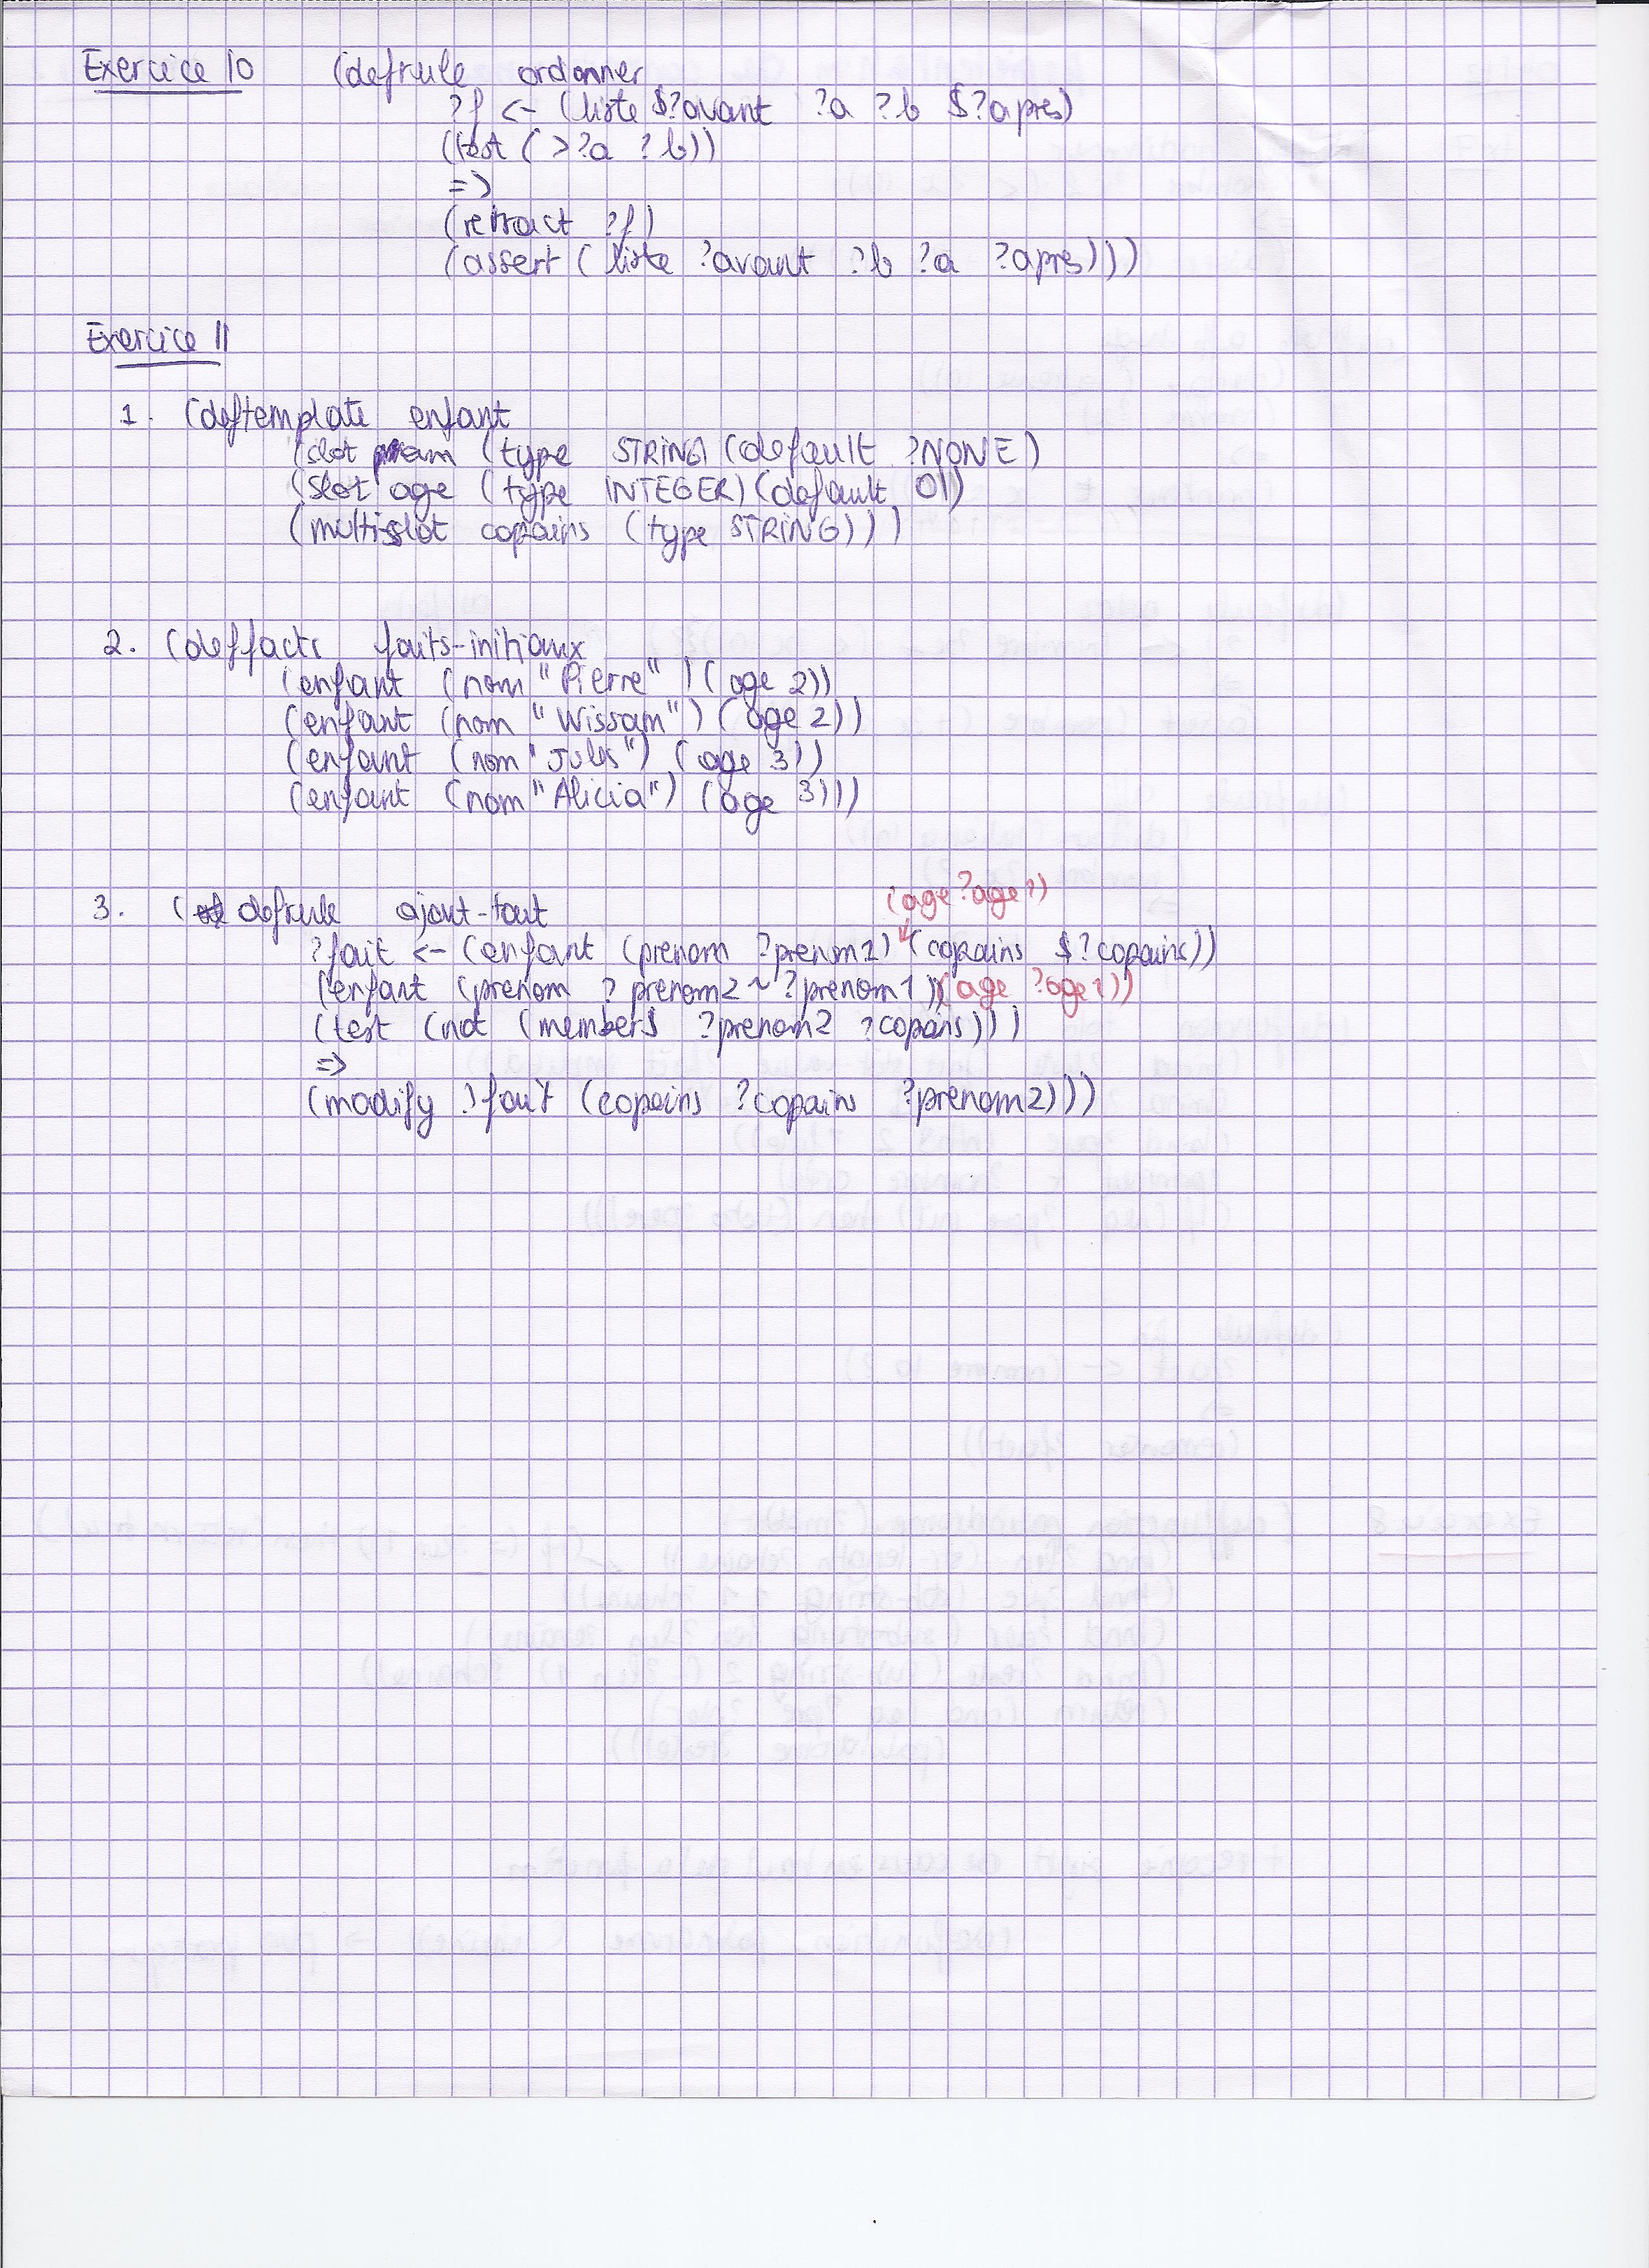 Exercice 10 (defrule ordonner
?f <- (liste $?avant ?a ?b $?apres)
(test (> ?a ?b))
=>
(retract ?f)
(assert (liste ?avant ?b ?a ?apres)))
Exercice 11
1. (deftemplate enfant
(slot (type STRING (default ?NONE)
(slot age (type INTEGER) (default 0))
(multislot copains (type STRING)))
2. (deffacts faits-initiaux
(enfant (nom "Pierre") (age 2))
(enfant (nom "Wissam") (age 2))
(enfant (nom "Jules") (age 3))
(enfant (nom "Alicia") (age 3)))
(age ?age1)
3. (defrule ajout-tout
?fait <- (enfant (prenom ?prenom1) (copains $?copains))
(enfant (prenom ?prenom2~?prenom1)) (age ?age1))
(test (not (member$ ?prenom2 ?copains)))
=>
(modify ?fait (copains ?copains ?prenom2)))